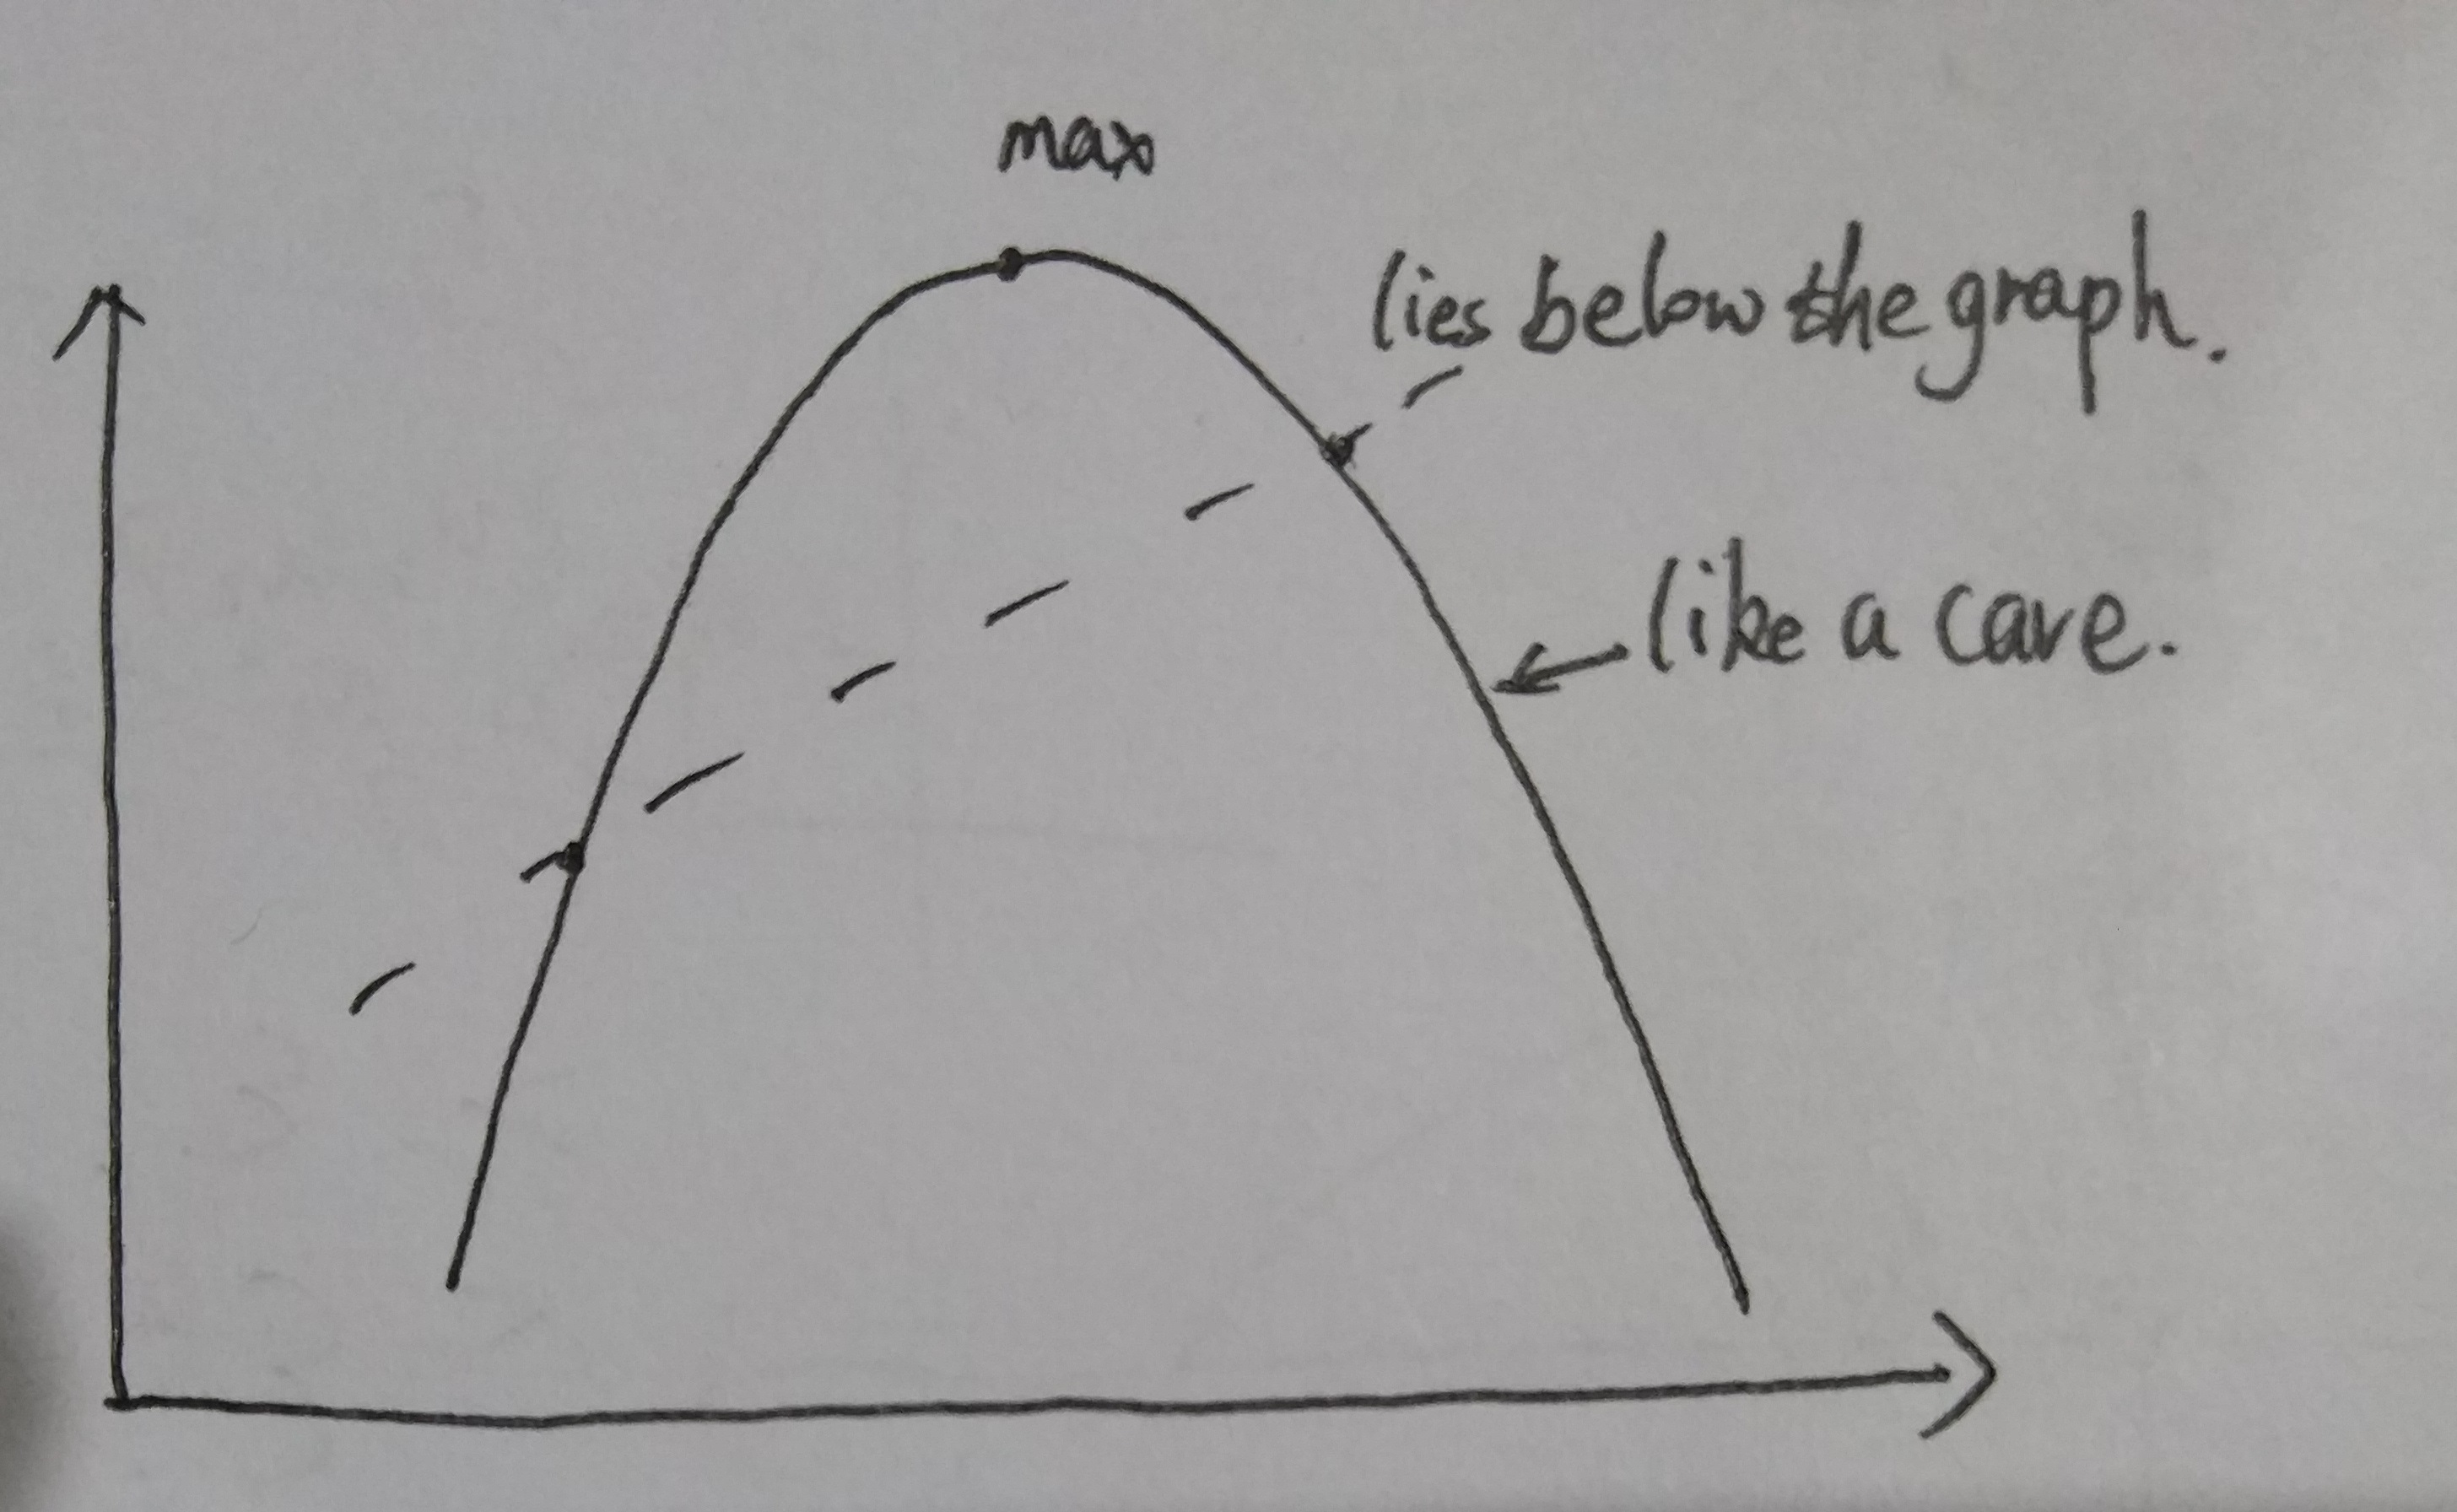 max
lies below the graph.
like a cave.